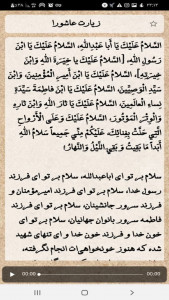 زیارت عاشورا
السَّلامُ عَلَيْكَ يَا أَبا عَبْدِاللَّهِ، السَّلامُ عَلَيْكَ يَا ابْنَ
رَسُولِ اللَّهِ، [السَّلامُ عَلَيْكَ يا خِيَرَةَ اللَّهِ وَابْنَ
خِيَرَتِهِ]، السَّلامُ عَلَيْكَ يَا ابْنَ أَمِيرِ الْمُؤْمِنِينَ، وَابْنَ
سَيِّدِ الْوَصِيِّينَ، السَّلامُ عَلَيْكَ يَا ابْنَ فاطِمَةَ سَيِّدَةِ
نِساءِ الْعالَمِينَ، السَّلامُ عَلَيْكَ يَا ثارَ اللَّهِ وَابْنَ ثارِهِ
وَالْوِتْرَ الْمَوْتُورَ، السَّلامُ عَلَيْكَ وَعَلَى الْأَرْواحِ
الَّتِي حَلَّتْ بِفِنائِكَ، عَلَيْكُمْ مِنِّي جَمِيعاً سَلامُ اللَّهِ
أَبَداً مَا بَقِيتُ وَبَقِيَ اللَّيْلُ وَالنَّهارُ؛
سلام بر تو ای اباعبدالله، سلام بر تو ای فرزند
رسول خدا، سلام بر تو ای فرزند امیرمؤمنان و
فرزند سرور جانشینان، سلام بر تو ای فرزند
فاطمه سرور بانوان جهانیان، سلام بر تو ای
خون خدا و فرزند خون خدا و ای تنهای شهید
شده که هنوز خونخواهی‌ات انجام نگرفته،
00:00
00:00